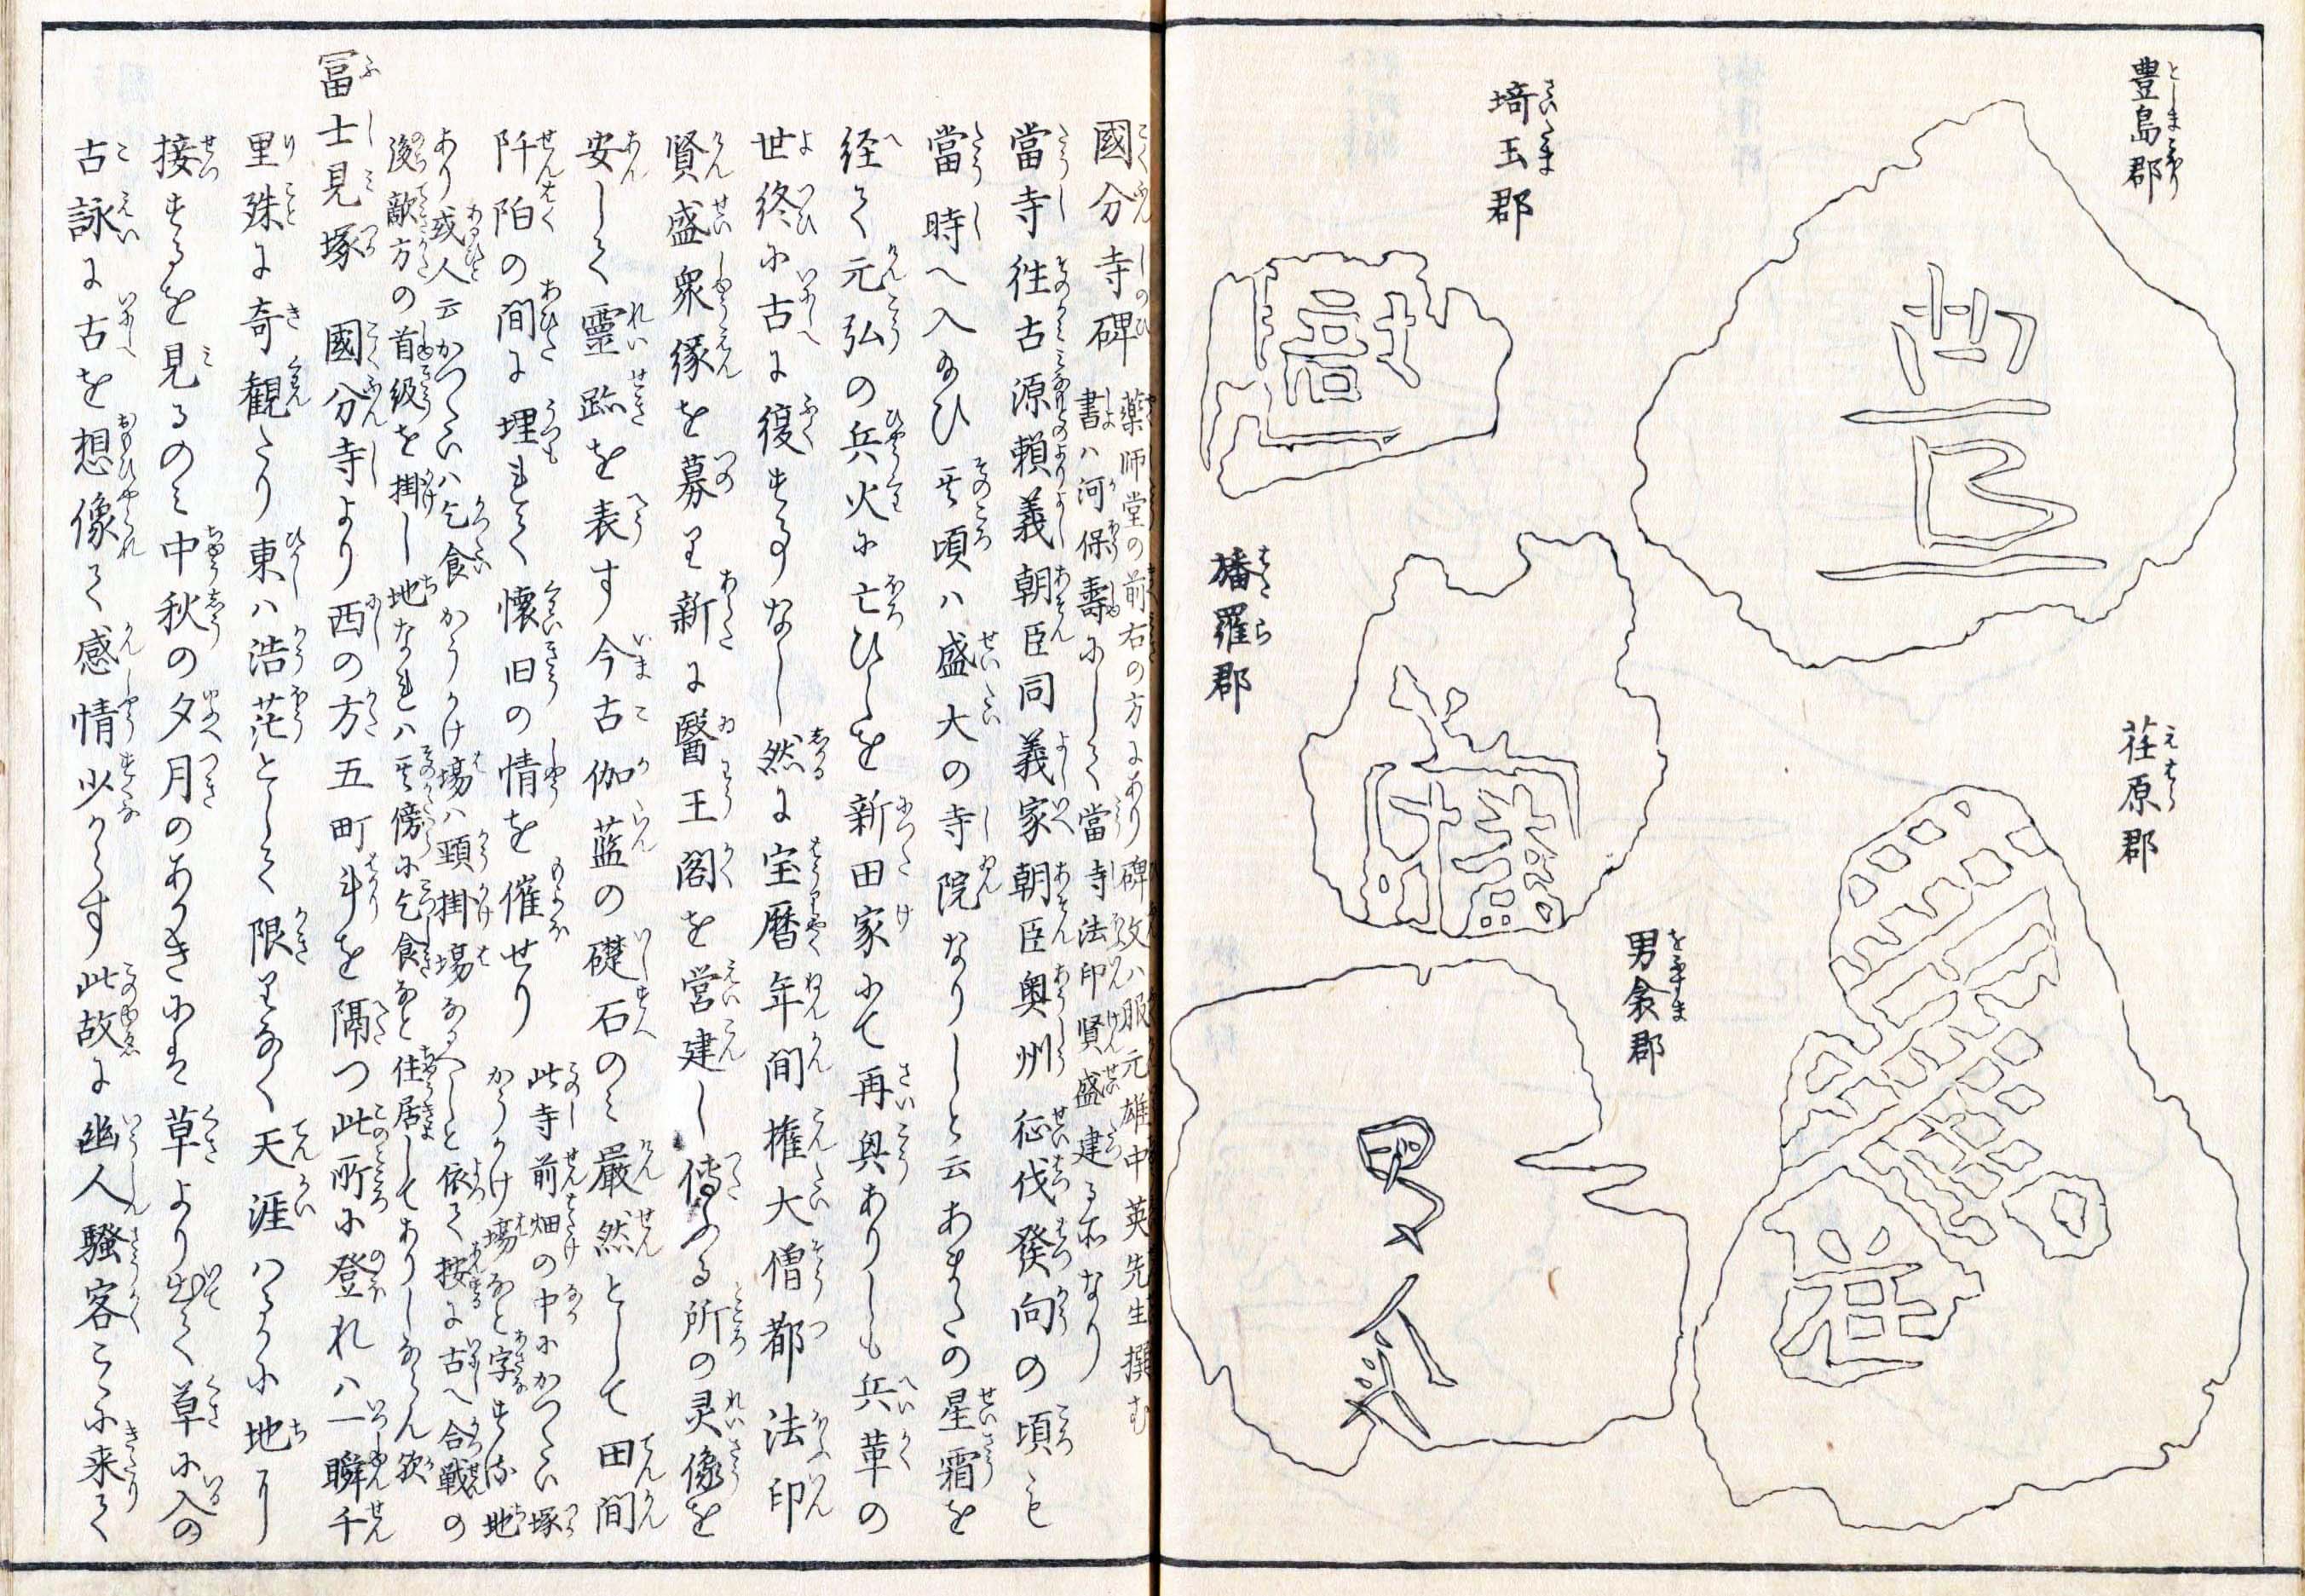 豊島郡
荏原郡
埼玉郡
幡羅郡
男衾郡
豊
男
國分寺碑 薬師堂の前右の方にあり碑文ハ服元雄中英先生撰む
書ハ河保壽にして當寺法印賢盛建る所なり
當寺往古源頼義朝臣同義家朝臣奥州征伐發向の頃も
當時へ入給ひ其頃ハ盛大の寺院なりしと云あまたの星霜を
経て元弘の兵火に亡ひしを新田家にて再興ありしも兵革の
世終に古に復する事なし然に宝暦年間権大僧都法印
賢盛衆縁を募り新に醫王閣を営建し傳ふる所の灵像を
安して靈跡を表す今古伽藍の礎石のミ嚴然として田間
阡陌の間に埋れて懐旧の情を催せり 此寺前畑の中にかつたい塚
かうかけ場なと字する地
あり或人云かつたいハ乞食かうかけ場ハ頸掛場なるへしと依て按に古へ合戦の
後敵方の首級を掛し地なれハ其傍に乞食なと住居してありしならん歟
冨士見塚 國分寺より西の方五町斗を隔つ此所に登れハ一瞬千
里殊に奇観たり東ハ浩茫として限りなく天涯ハるかに地に
接するを見るのミ中秋の夕月のあかきにハ草より出て草に入の
古詠に古を想像て感情少からす此故に幽人騒客こゝに来て